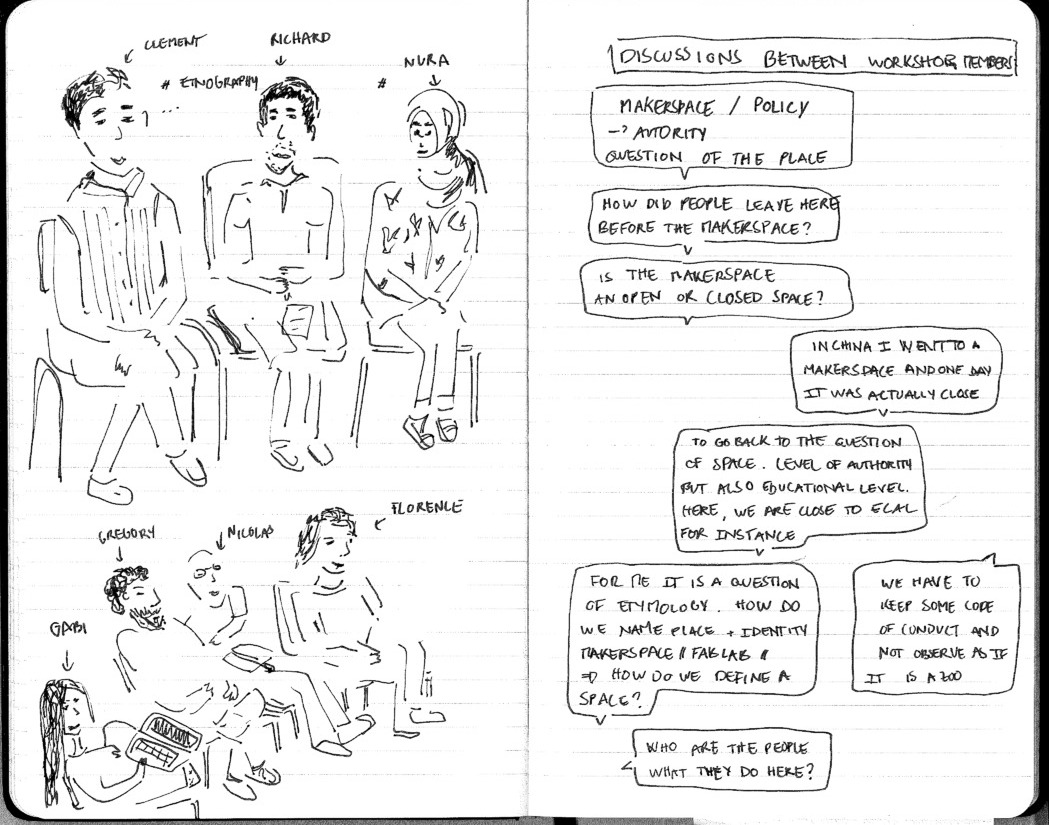 CLEMENT
RICHARD
NURA
# ETNOGRAPHY
#
GREGORY
NICOLAS
FLORENCE
GABI
DISCUSSIONS BETWEEN WORKSHOP MEMBERS
MAKERSPACE / POLICY
-> AUTORITY
QUESTION OF THE PLACE
HOW DID PEOPLE LEAVE HERE
BEFORE THE MAKERSPACE?
IS THE MAKERSPACE
AN OPEN OR CLOSED SPACE?
IN CHINA I WENT TO A
MAKERSPACE AND ONE DAY
IT WAS ACTUALLY CLOSE
TO GO BACK TO THE QUESTION
OF SPACE. LEVEL OF AUTHORITY
BUT ALSO EDUCATIONAL LEVEL.
HERE, WE ARE CLOSE TO ECAL
FOR INSTANCE
FOR ME IT IS A QUESTION
OF ETYMOLOGY. HOW DO
WE NAME PLACE + IDENTITY
MAKERSPACE // FABLAB //
=> HOW DO WE DEFINE A
SPACE?
WE HAVE TO
KEEP SOME CODE
OF CONDUCT AND
NOT OBSERVE AS IF
IT IS A ZOO
WHO ARE THE PEOPLE
WHAT THEY DO HERE?